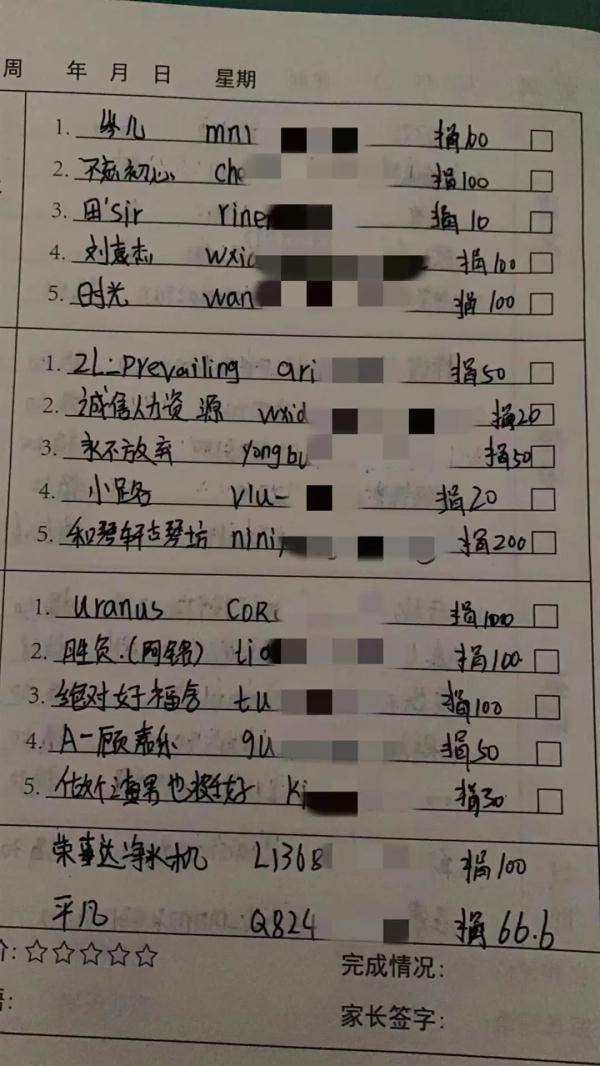 周 年 月 日 星期
1. mni 捐60
2. 不忘初心 che 捐100
3. 田'sir rine 捐10
4. 刘嘉杰 wxid 捐100
5. 时光 wan 捐100
1. ZL-Prevailing ari 捐50
2. 诚信人力资源 wxid 捐20
3. 永不放弃 yongbu 捐50
4. 小路 viu- 捐20
5. 和琴轩古琴坊 nini 捐200
1. uranus CORi 捐1000
2. 胜负.(网铭) tia 捐100
3. 绝对好福舍 tu 捐100
4. A-顾嘉乐 gu 捐50
5. 做个渣男也挺好 ki 捐30
荣事达净水机 L1368 捐100
平凡 Q824 捐66.6
价:☆☆☆☆☆ 完成情况:
语: 家长签字: